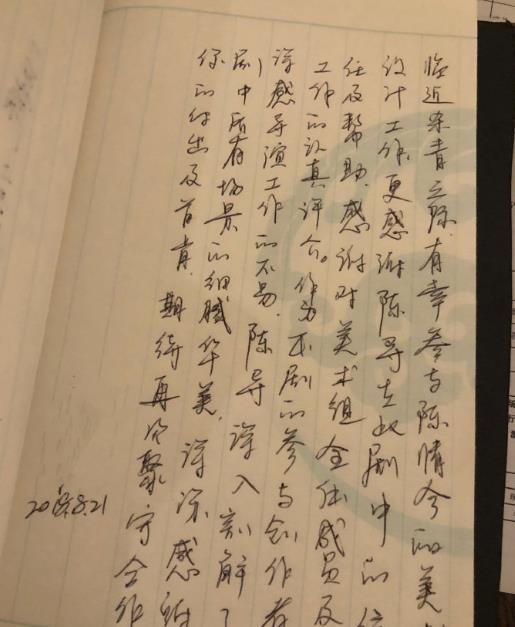 临近杀青之际，有幸参与陈情令的美
设计工作，更感谢陈导在此剧中的信
任及帮助，感谢对美术组全体成员及
工作的认真评介。作为本剧的参与创作者
深感导演工作的不易，陈导深入剖解了
剧中所有场景的细腻华美，深深感谢
你的付出及首肯，期待再次聚守合作
2018.8.21